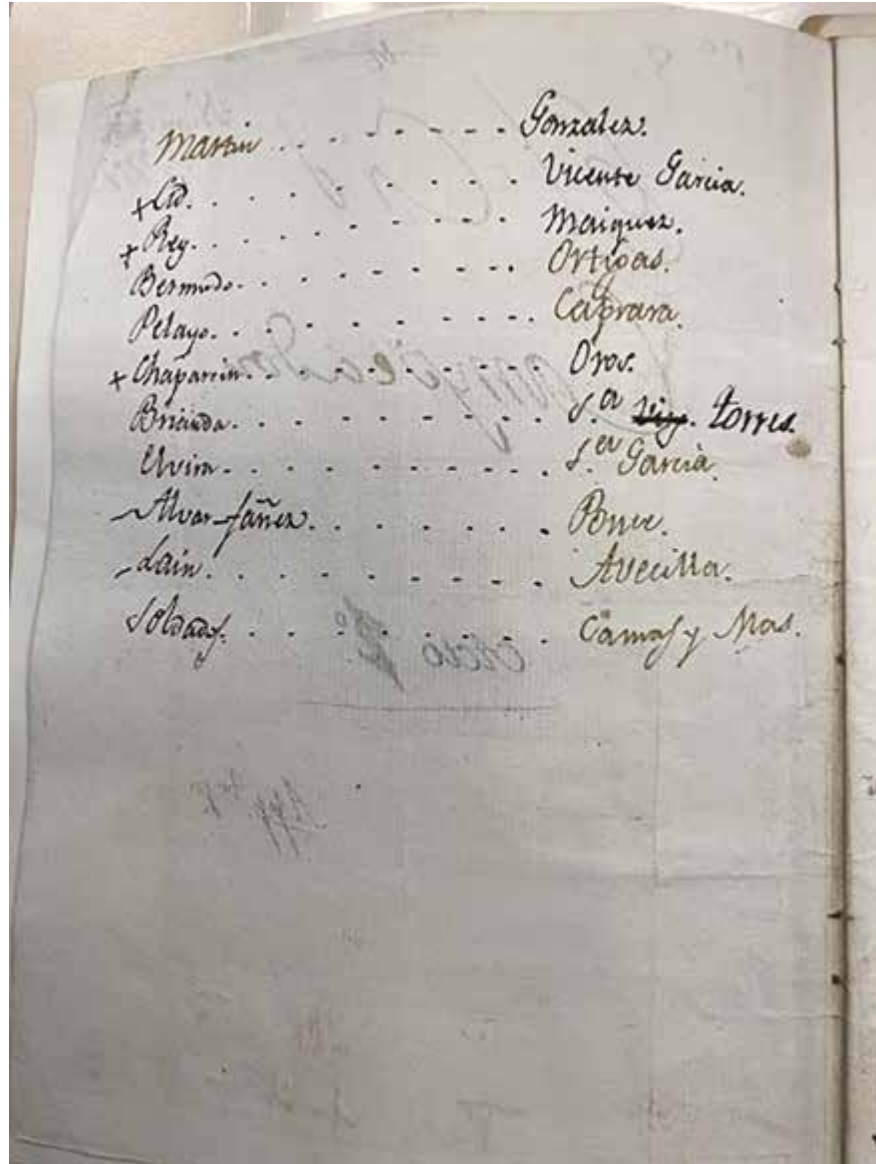 Martin . . . . . . . . Gonzalez.
+ Cid. . . . . . . . . Vicente Garcia.
+ Rey. . . . . . . . . Maiquez.
Bermudo. . . . . . . . . Ortigas.
Pelayo. . . . . . . . . Caprara.
+ Chaparrin. . . . . . . . . Oros.
Brianda. . . . . . . . . S.ra Torres.
Elvira. . . . . . . . . S.ra Garcia.
Alvar-fañez. . . . . . . . Ponce.
Lain. . . . . . . . . Avecilla.
Soldados. . . . . . . . . Camas y Mas.